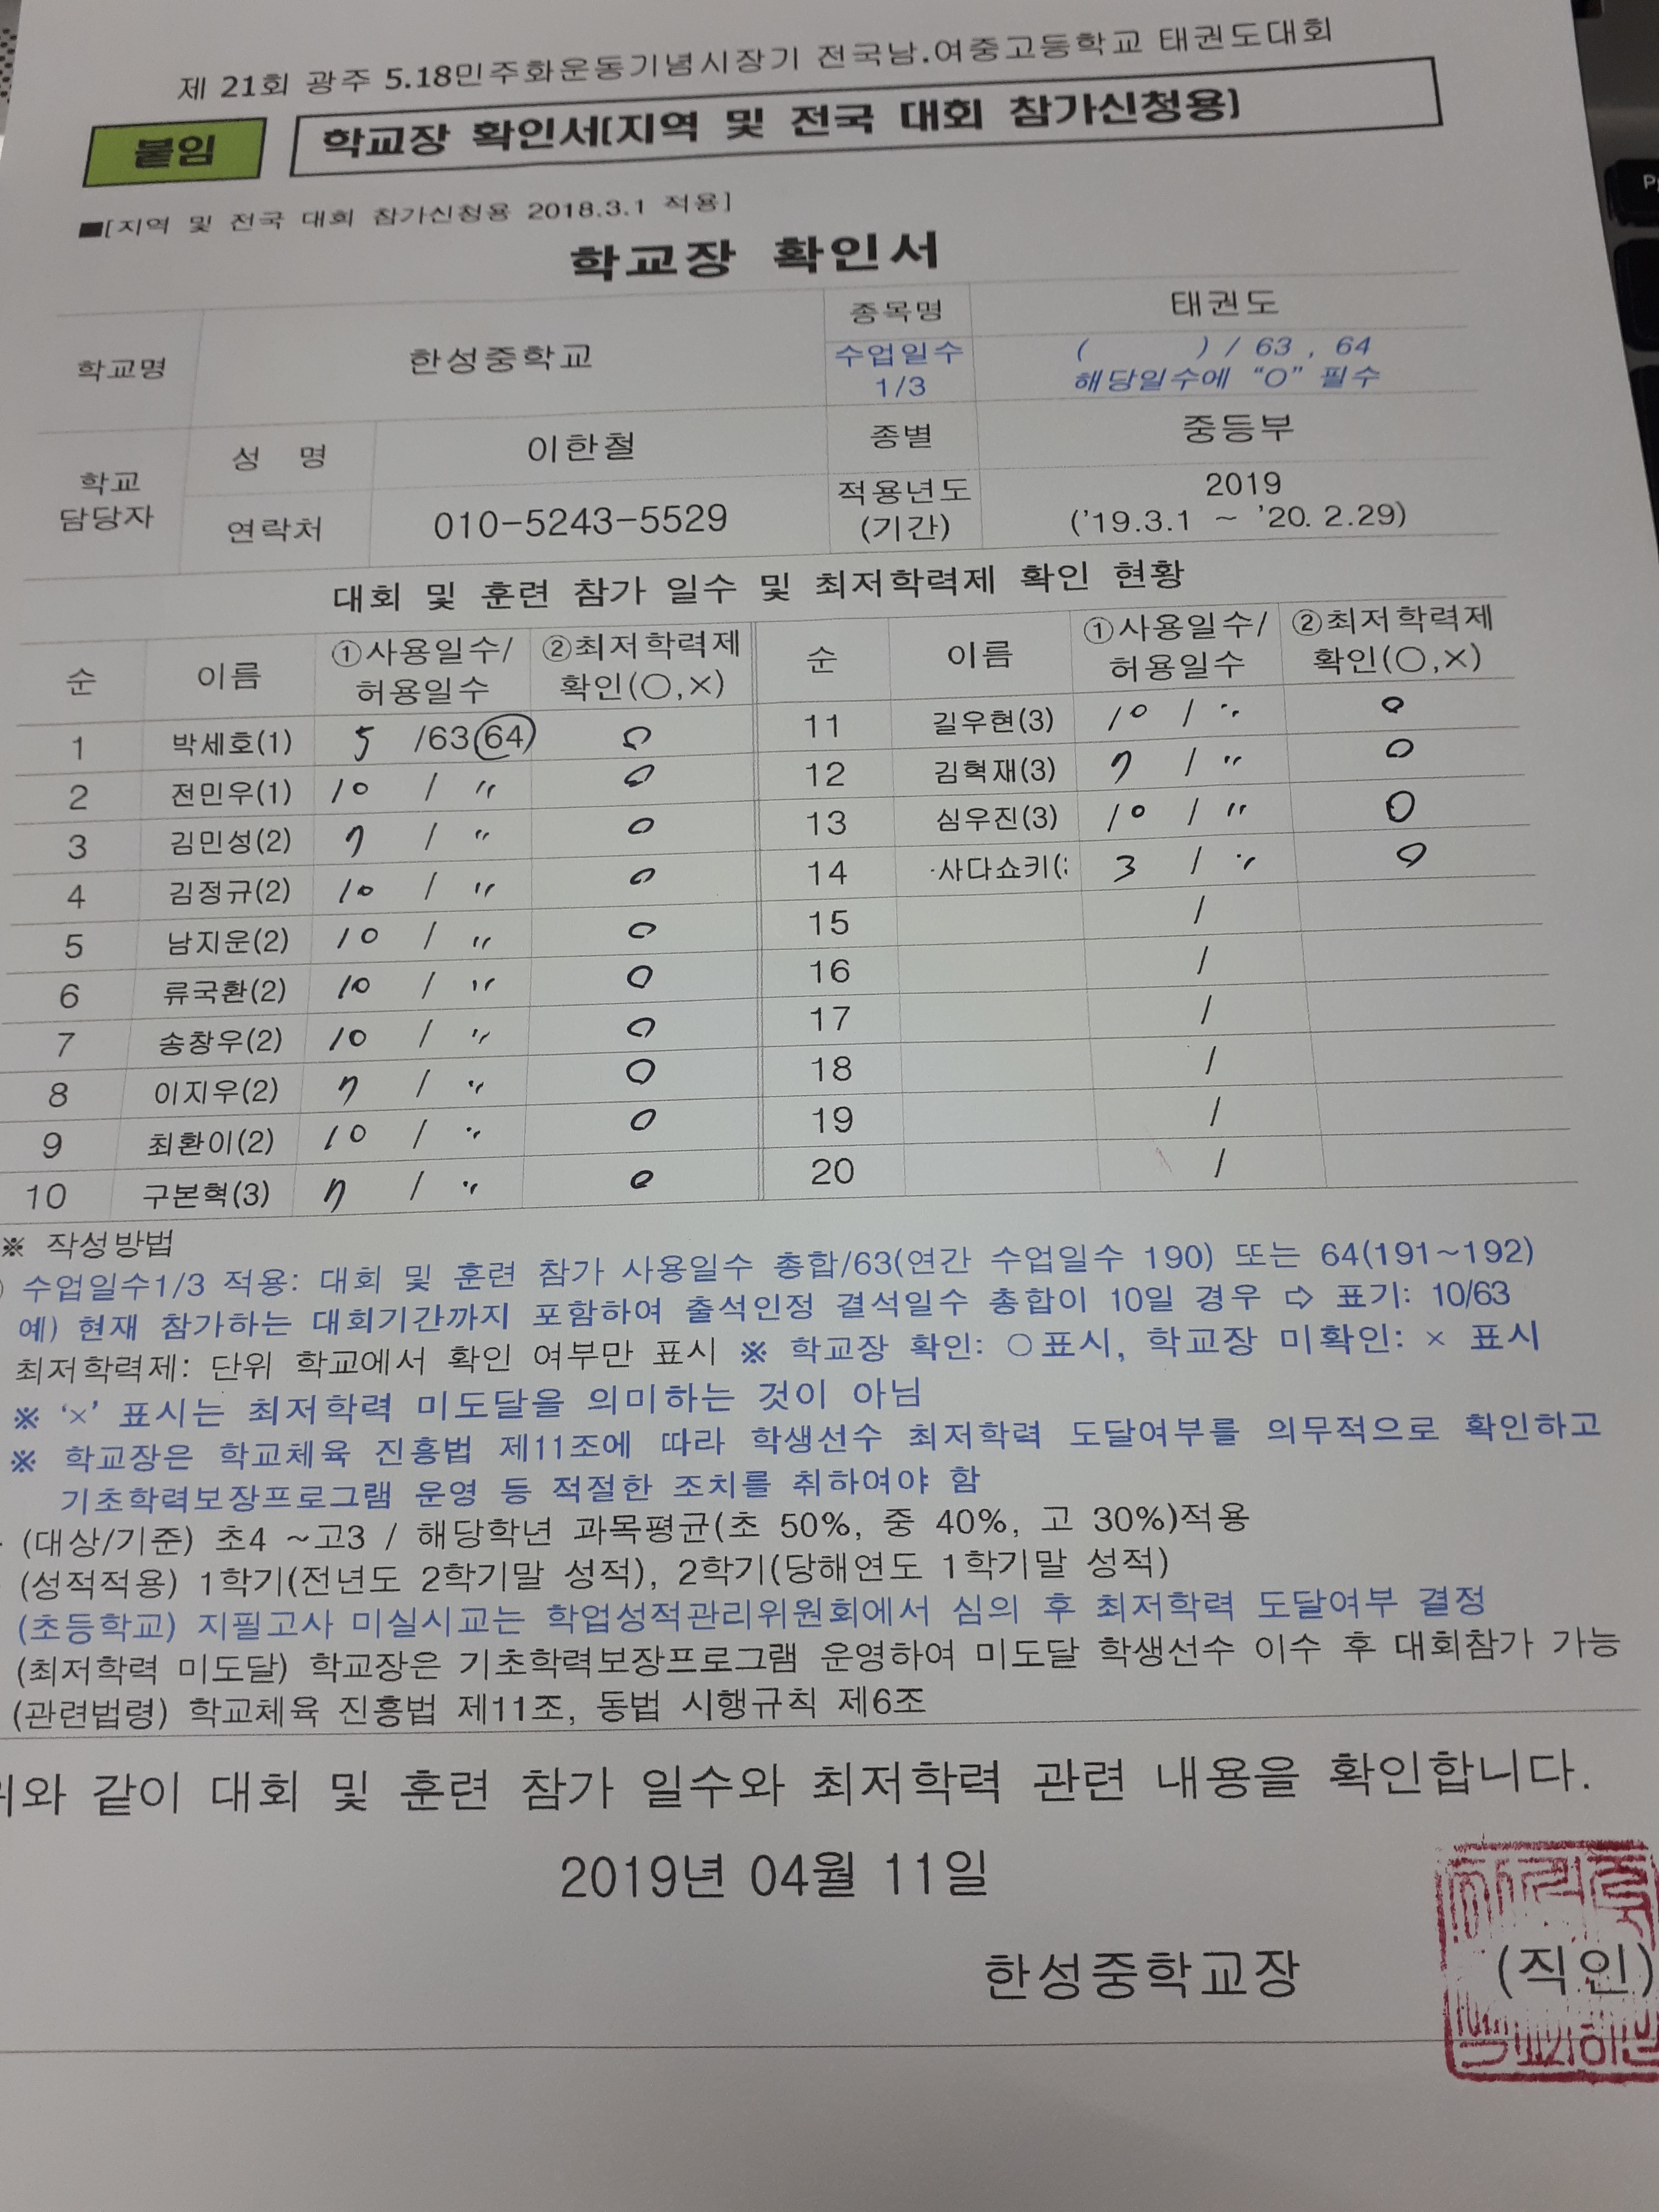 제 21회 광주 5.18민주화운동기념시장기 전국남.여중고등학교 태권도대회
붙임 학교장 확인서[지역 및 전국 대회 참가신청용]
■[지역 및 전국 대회 참가신청용 2018.3.1 적용]
학교장 확인서
학교명 한성중학교 종목명 태권도
수업일수 1/3 ( ) / 63 , 64
해당일수에 “O” 필수
학교 담당자 성 명 이한철 종별 중등부
연락처 010-5243-5529 적용년도 (기간) 2019
('19.3.1 ~ '20. 2.29)
대회 및 훈련 참가 일수 및 최저학력제 확인 현황
순 이름 ①사용일수/허용일수 ②최저학력제 확인(○,×) 순 이름 ①사용일수/허용일수 ②최저학력제 확인(○,×)
1 박세호(1) 5 /63 64 O 11 길우현(3) 10 / 〃 O
2 전민우(1) 10 / 〃 O 12 김혁재(3) 7 / 〃 O
3 김민성(2) 7 / 〃 O 13 심우진(3) 10 / 〃 O
4 김정규(2) 10 / 〃 O 14 사다쇼키( 3 / 〃 O
5 남지운(2) 10 / 〃 O 15 /
6 류국환(2) 10 / 〃 O 16 /
7 송창우(2) 10 / 〃 O 17 /
8 이지우(2) 7 / 〃 O 18 /
9 최환이(2) 10 / 〃 O 19 /
10 구본혁(3) 7 / 〃 O 20 /
※ 작성방법
수업일수1/3 적용: 대회 및 훈련 참가 사용일수 총합/63(연간 수업일수 190) 또는 64(191~192)
예) 현재 참가하는 대회기간까지 포함하여 출석인정 결석일수 총합이 10일 경우 ⇨ 표기: 10/63
최저학력제: 단위 학교에서 확인 여부만 표시 ※ 학교장 확인: ○표시, 학교장 미확인: × 표시
※ ‘×’ 표시는 최저학력 미도달을 의미하는 것이 아님
※ 학교장은 학교체육 진흥법 제11조에 따라 학생선수 최저학력 도달여부를 의무적으로 확인하고
기초학력보장프로그램 운영 등 적절한 조치를 취하여야 함
(대상/기준) 초4 ~고3 / 해당학년 과목평균(초 50%, 중 40%, 고 30%)적용
(성적적용) 1학기(전년도 2학기말 성적), 2학기(당해연도 1학기말 성적)
(초등학교) 지필고사 미실시교는 학업성적관리위원회에서 심의 후 최저학력 도달여부 결정
(최저학력 미도달) 학교장은 기초학력보장프로그램 운영하여 미도달 학생선수 이수 후 대회참가 가능
(관련법령) 학교체육 진흥법 제11조, 동법 시행규칙 제6조
위와 같이 대회 및 훈련 참가 일수와 최저학력 관련 내용을 확인합니다.
2019년 04월 11일
한성중학교장 (직인)